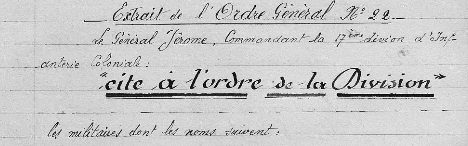 Extrait de l'Ordre Général N° 22
Le Général Jérome, Commandant la 17ème divsion d'Inf-
anterie Coloniale:
"cite à l'ordre de la Division"
les militaires dont les noms suivent: